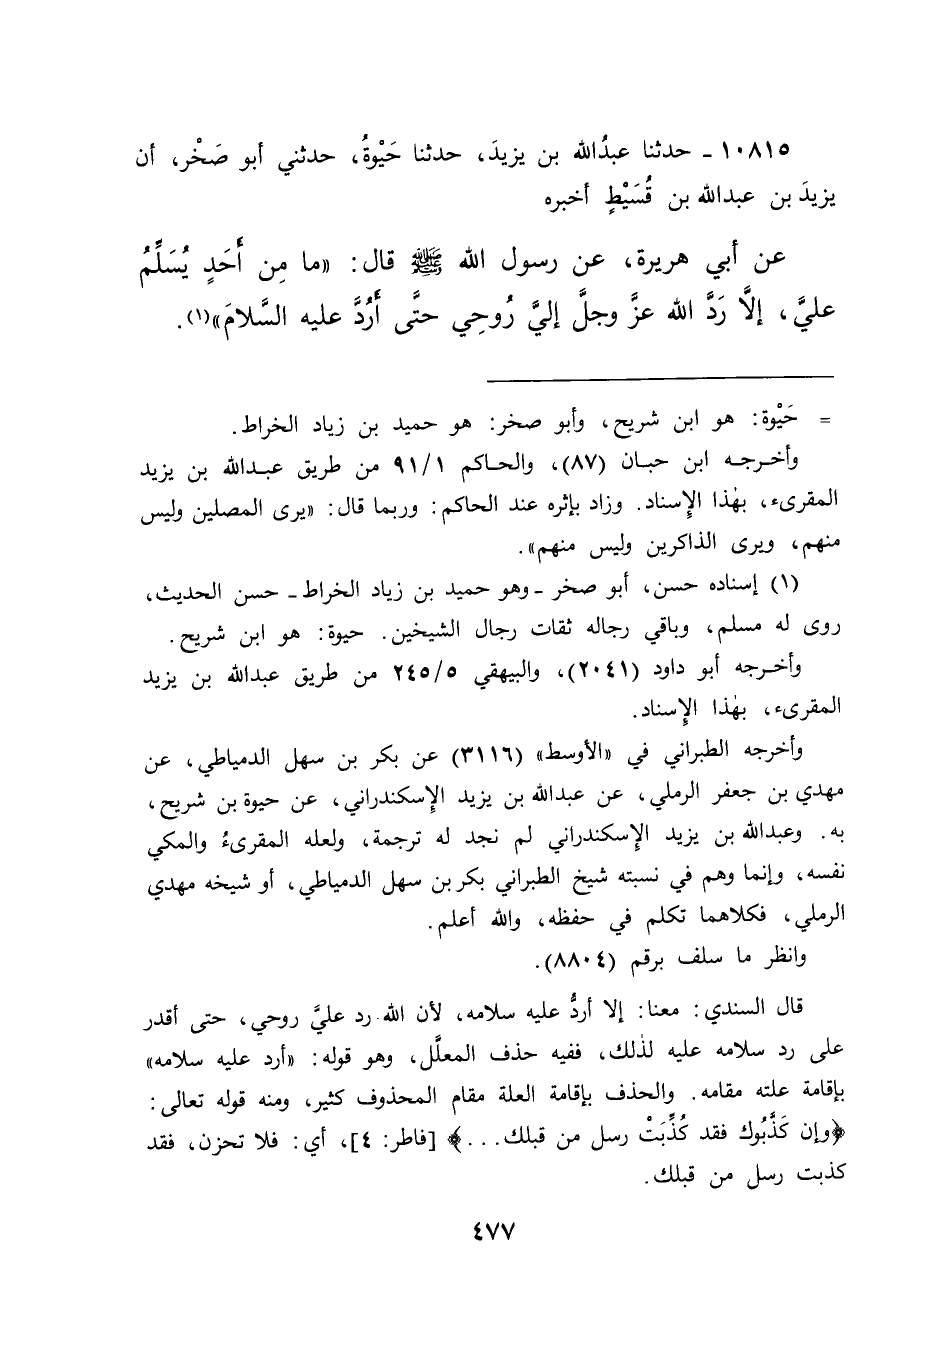 ١٠٨١٥ ـ حدثنا عبدُالله بن يزيدَ، حدثنا حَيْوةُ، حدثني أبو صَخْر، أن
يزيدَ بن عبدالله بن قُسَيْطٍ أخبره
عن أبي هريرة، عن رسول الله ﷺ قال: «ما مِن أَحَدٍ يُسَلِّمُ
عليَّ، إلَّا رَدَّ الله عزَّ وجلَّ إليَّ رُوحِي حتَّى أَرُدَّ عليه السَّلامَ»(١).
= حَيْوة: هو ابن شريح، وأبو صخر: هو حميد بن زياد الخراط.
وأخرجه ابن حبان (٨٧)، والحاكم ٩١/١ من طريق عبدالله بن يزيد
المقرىء، بهٰذا الإِسناد. وزاد بإثره عند الحاكم: وربما قال: «يرى المصلين وليس
منهم، ويرى الذاكرين وليس منهم».
(١) إسناده حسن، أبو صخر ـ وهو حميد بن زياد الخراط ـ حسن الحديث،
روى له مسلم، وباقي رجاله ثقات رجال الشيخين. حيوة: هو ابن شريح.
وأخرجه أبو داود (٢٠٤١)، والبيهقي ٢٤٥/٥ من طريق عبدالله بن يزيد
المقرىء، بهٰذا الإِسناد.
وأخرجه الطبراني في «الأوسط» (٣١١٦) عن بكر بن سهل الدمياطي، عن
مهدي بن جعفر الرملي، عن عبدالله بن يزيد الإِسكندراني، عن حيوة بن شريح،
به. وعبدالله بن يزيد الإِسكندراني لم نجد له ترجمة، ولعله المقرىءُ والمكي
نفسه، وإنما وهم في نسبته شيخ الطبراني بكر بن سهل الدمياطي، أو شيخه مهدي
الرملي، فكلاهما تكلم في حفظه، والله أعلم.
وانظر ما سلف برقم (٨٨٠٤).
قال السندي: معنا: إلا أردُّ عليه سلامه، لأن الله رد عليَّ روحي، حتى أقدر
على رد سلامه عليه لذٰلك، ففيه حذف المعلَّل، وهو قوله: «أرد عليه سلامه»
بإقامة علته مقامه. والحذف بإقامة العلة مقام المحذوف كثير، ومنه قوله تعالى:
﴿وإن كَذَّبُوك فقد كُذِّبَتْ رسل من قبلك...﴾ [فاطر: ٤]، أي: فلا تحزن، فقد
كذبت رسل من قبلك.
٤٧٧